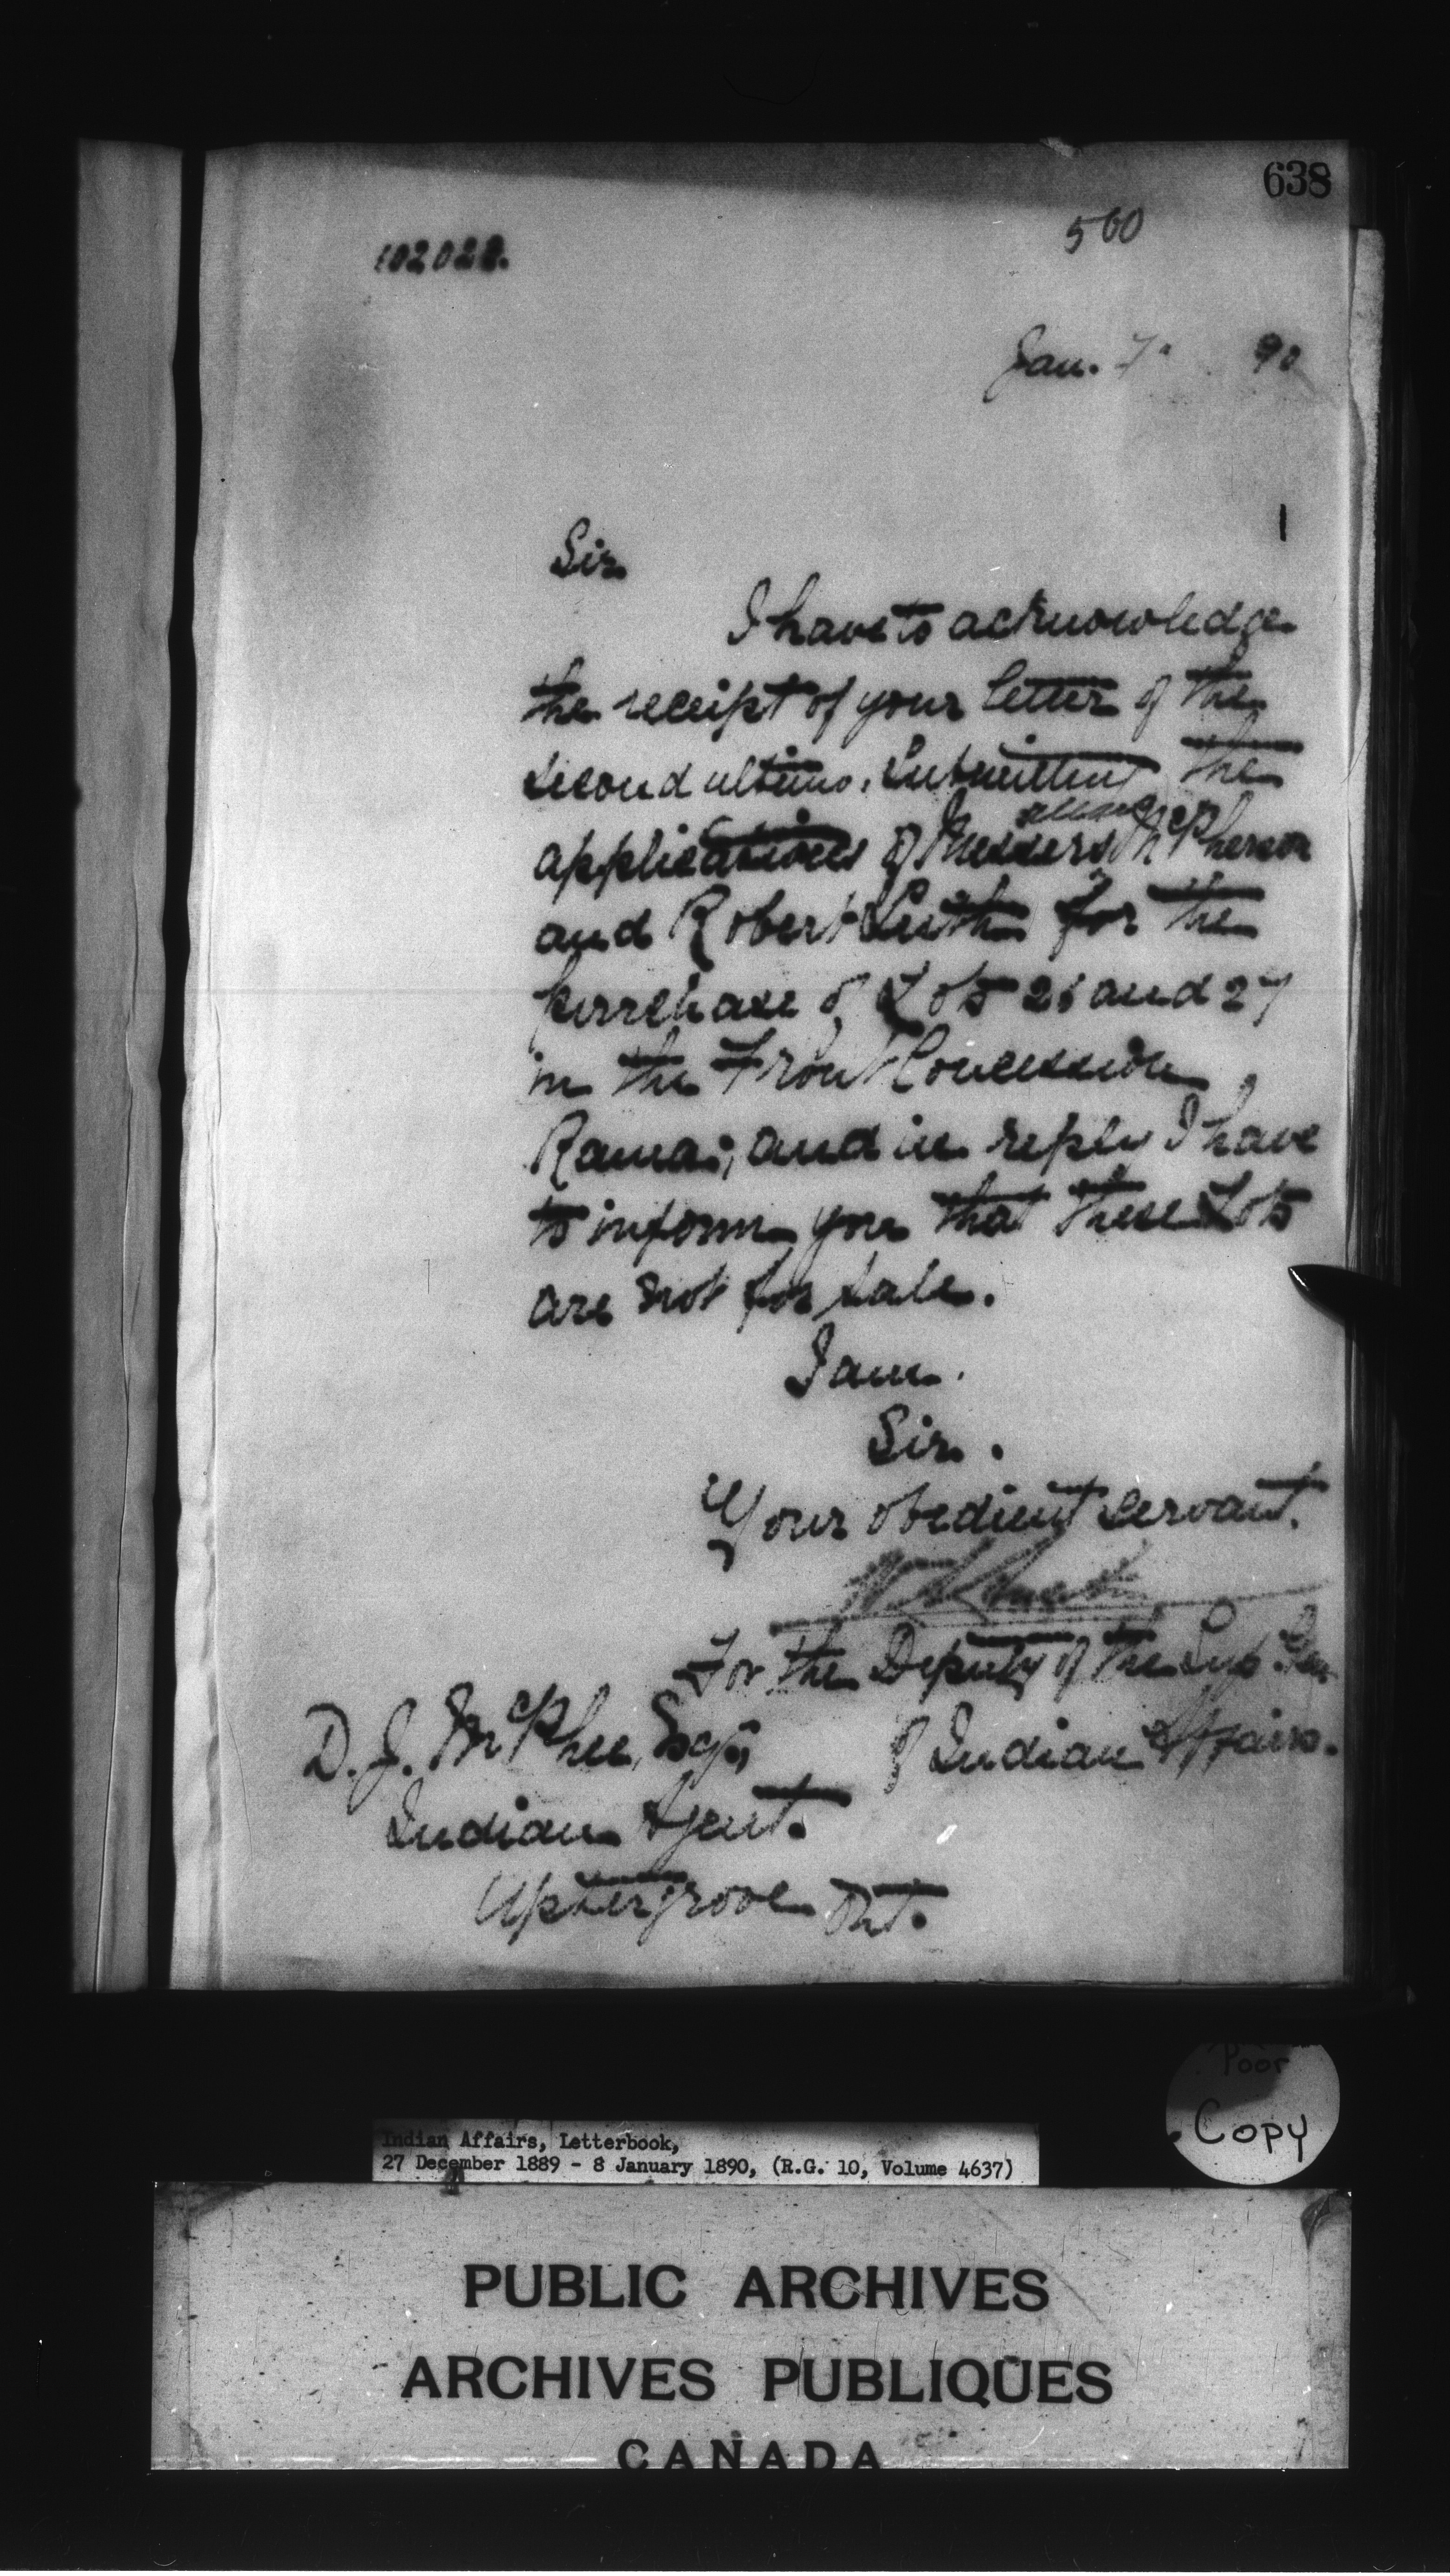 638
560
102022.
Jan. 7. 90
Sir
I have to acknowledge
the receipt of your letter of the
second ultimo, submitting the
applications of Messers McPherson
and Robert for the
purchase of Lots 26 and 27
in the Front Concession
Rama, and in reply I have
to inform you that these Lots
are not for sale.
I am.
Sir.
Your obedient servant.
For the Deputy of the Sup. Gen
of Indian Affairs.
D. J. McPhee, Esq,
Indian Agent.
Uptergrove Ont.
Poor
Copy
Indian Affairs, Letterbook,
27 December 1889 - 8 January 1890, (R.G. 10, Volume 4637)
PUBLIC ARCHIVES
ARCHIVES PUBLIQUES
CANADA